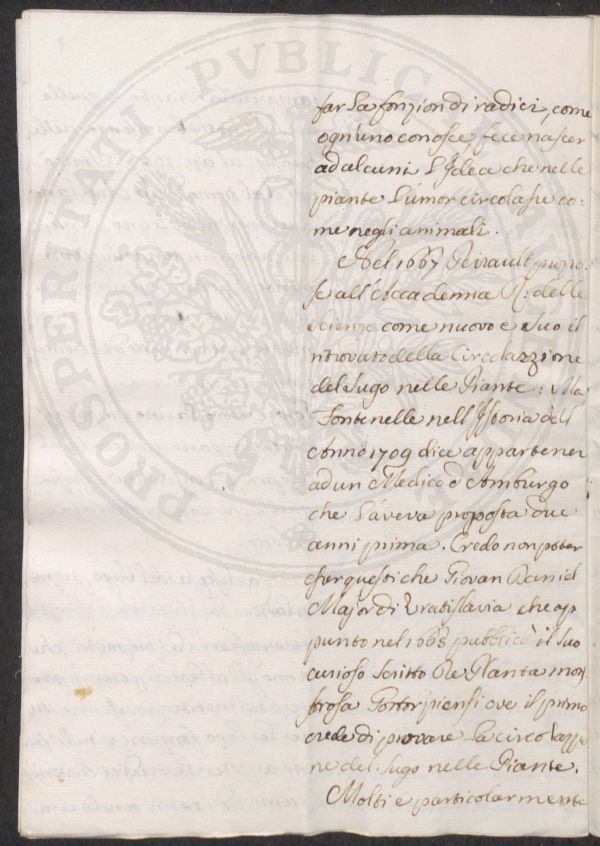 far La fonzion di radici, come
ogn'uno conosce, fece nascer
ad alcuni L'Idea che nelle
piante L'umor circolasse co:
me negli animali.
Nel 1667 Perrault propo:
se all'Accademia R: delle
Scienze come nuovo e suo il
ritrovato della Circolazzione
del Sugo nelle Piante: Ma
Fontenelle nell'Istoria dell
Anno 1709 dice appartener
ad un Medico d'Amburgo
che L'aveva proposta due
anni prima. Credo non poter
esser questi che Giovan Daniel
Major di Vratislavia che ap
punto nel 1665 pubblicò il suo
curioso scritto De Planta mon
strosa Gottorpiensi ove il primo
crede di provare La circolazzio
ne del Sugo nelle Piante.
Molti e particolarmente
PROSPERITATI PUBLICAE